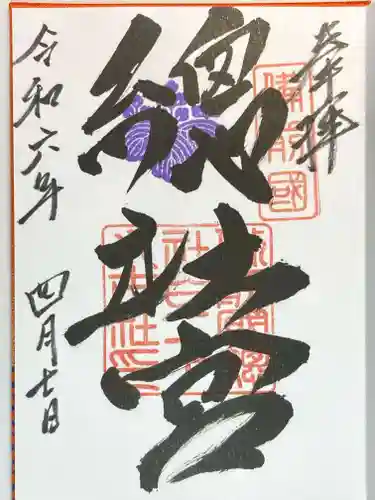 奉拝
備前國
總社宮
令和六年
四月七日